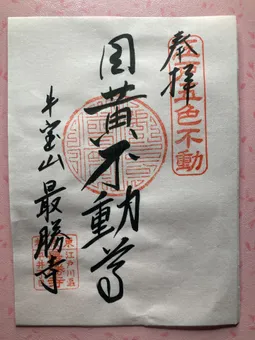 奉拝
江戸五色不動
目黄不動尊
牛宝山 最勝寺